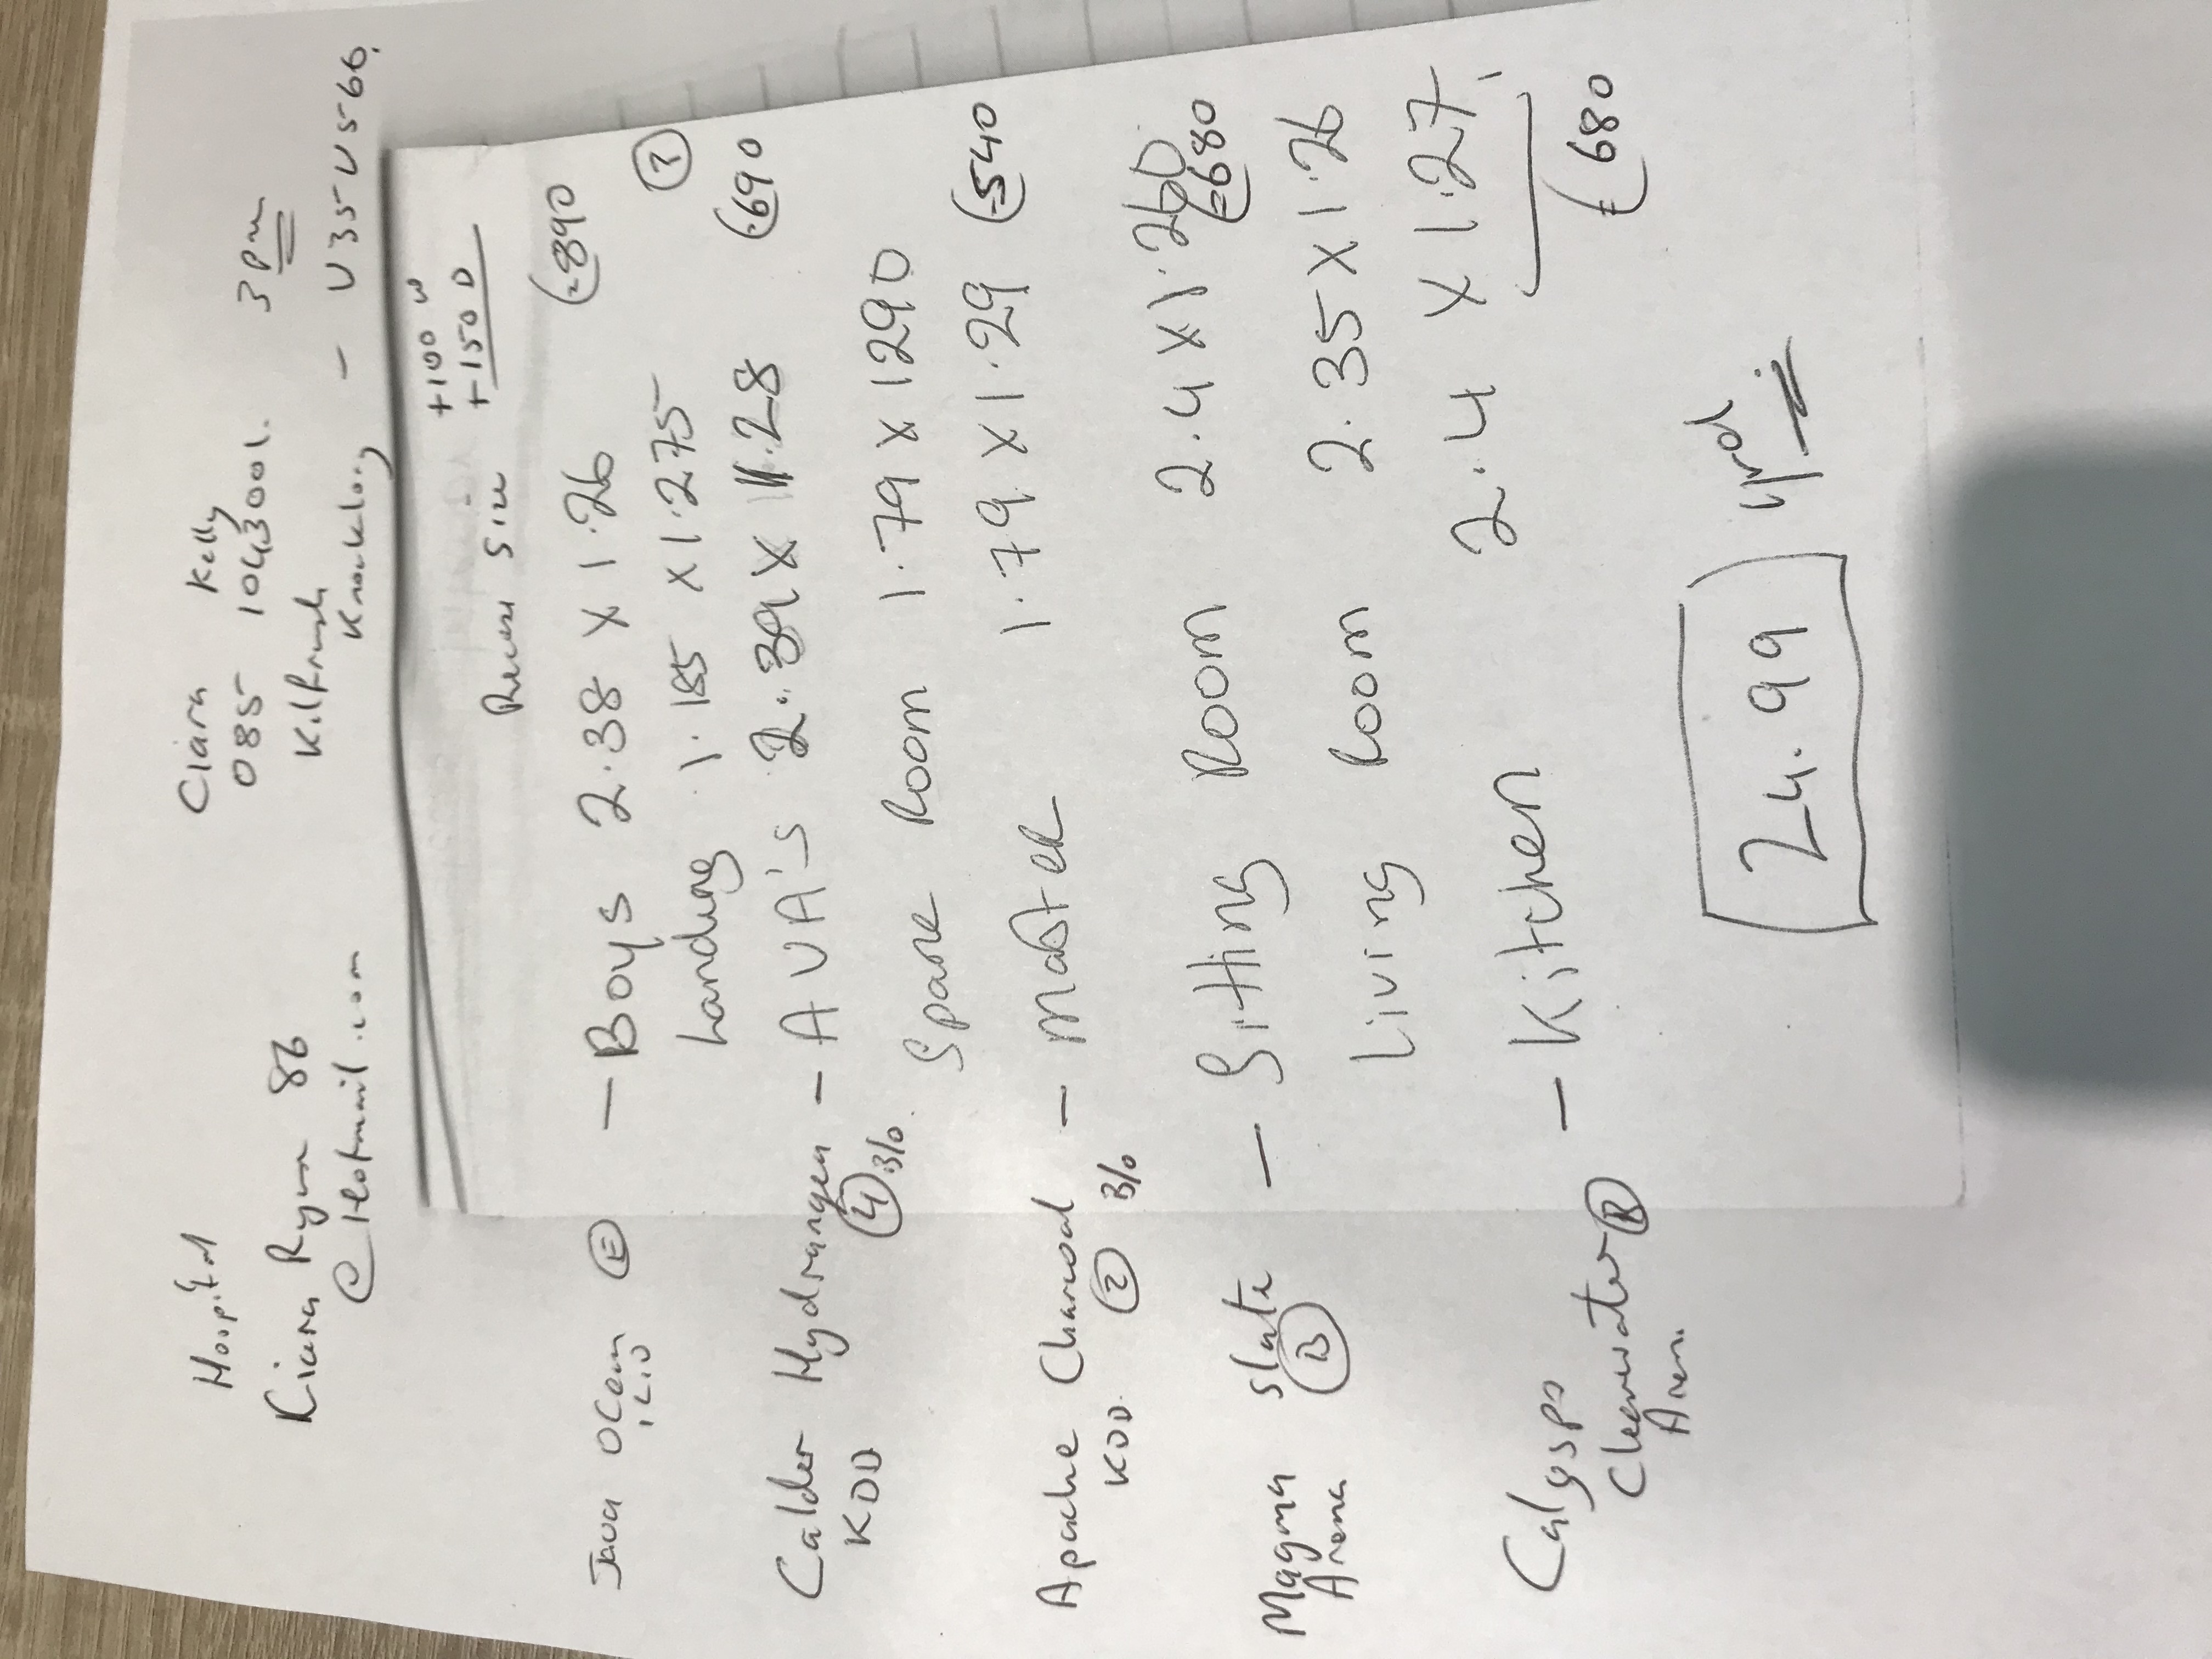 Ciara Kelly 3pm
085 1043001.
Kilfrush
Knocklong - V35VV566.
Hospital
Ciara Ryan 86
@ Hotmail.com
Recess Size +100 W
+150 D
Java Ocean (E) - Boys 2.38 X 1.26 (-890
Landing 1.185 X 1.275
Calder Hydrangea - AVA's 2.39 X 1.28 (-690
KDD (4) B/o.
Spare Room 1.79 X 1290
Apache Charcoal - master 1.79 X 1.29 (-540
KDD. (2) B/o
Magma Slate - Sitting Room 2.4 X 1.260 (-680
Arena (B)
Living Room 2.35 X 1.26
Calypso - Kitchen 2.4 X 1.27
Clearwater (R) 680
Arena.
24.99